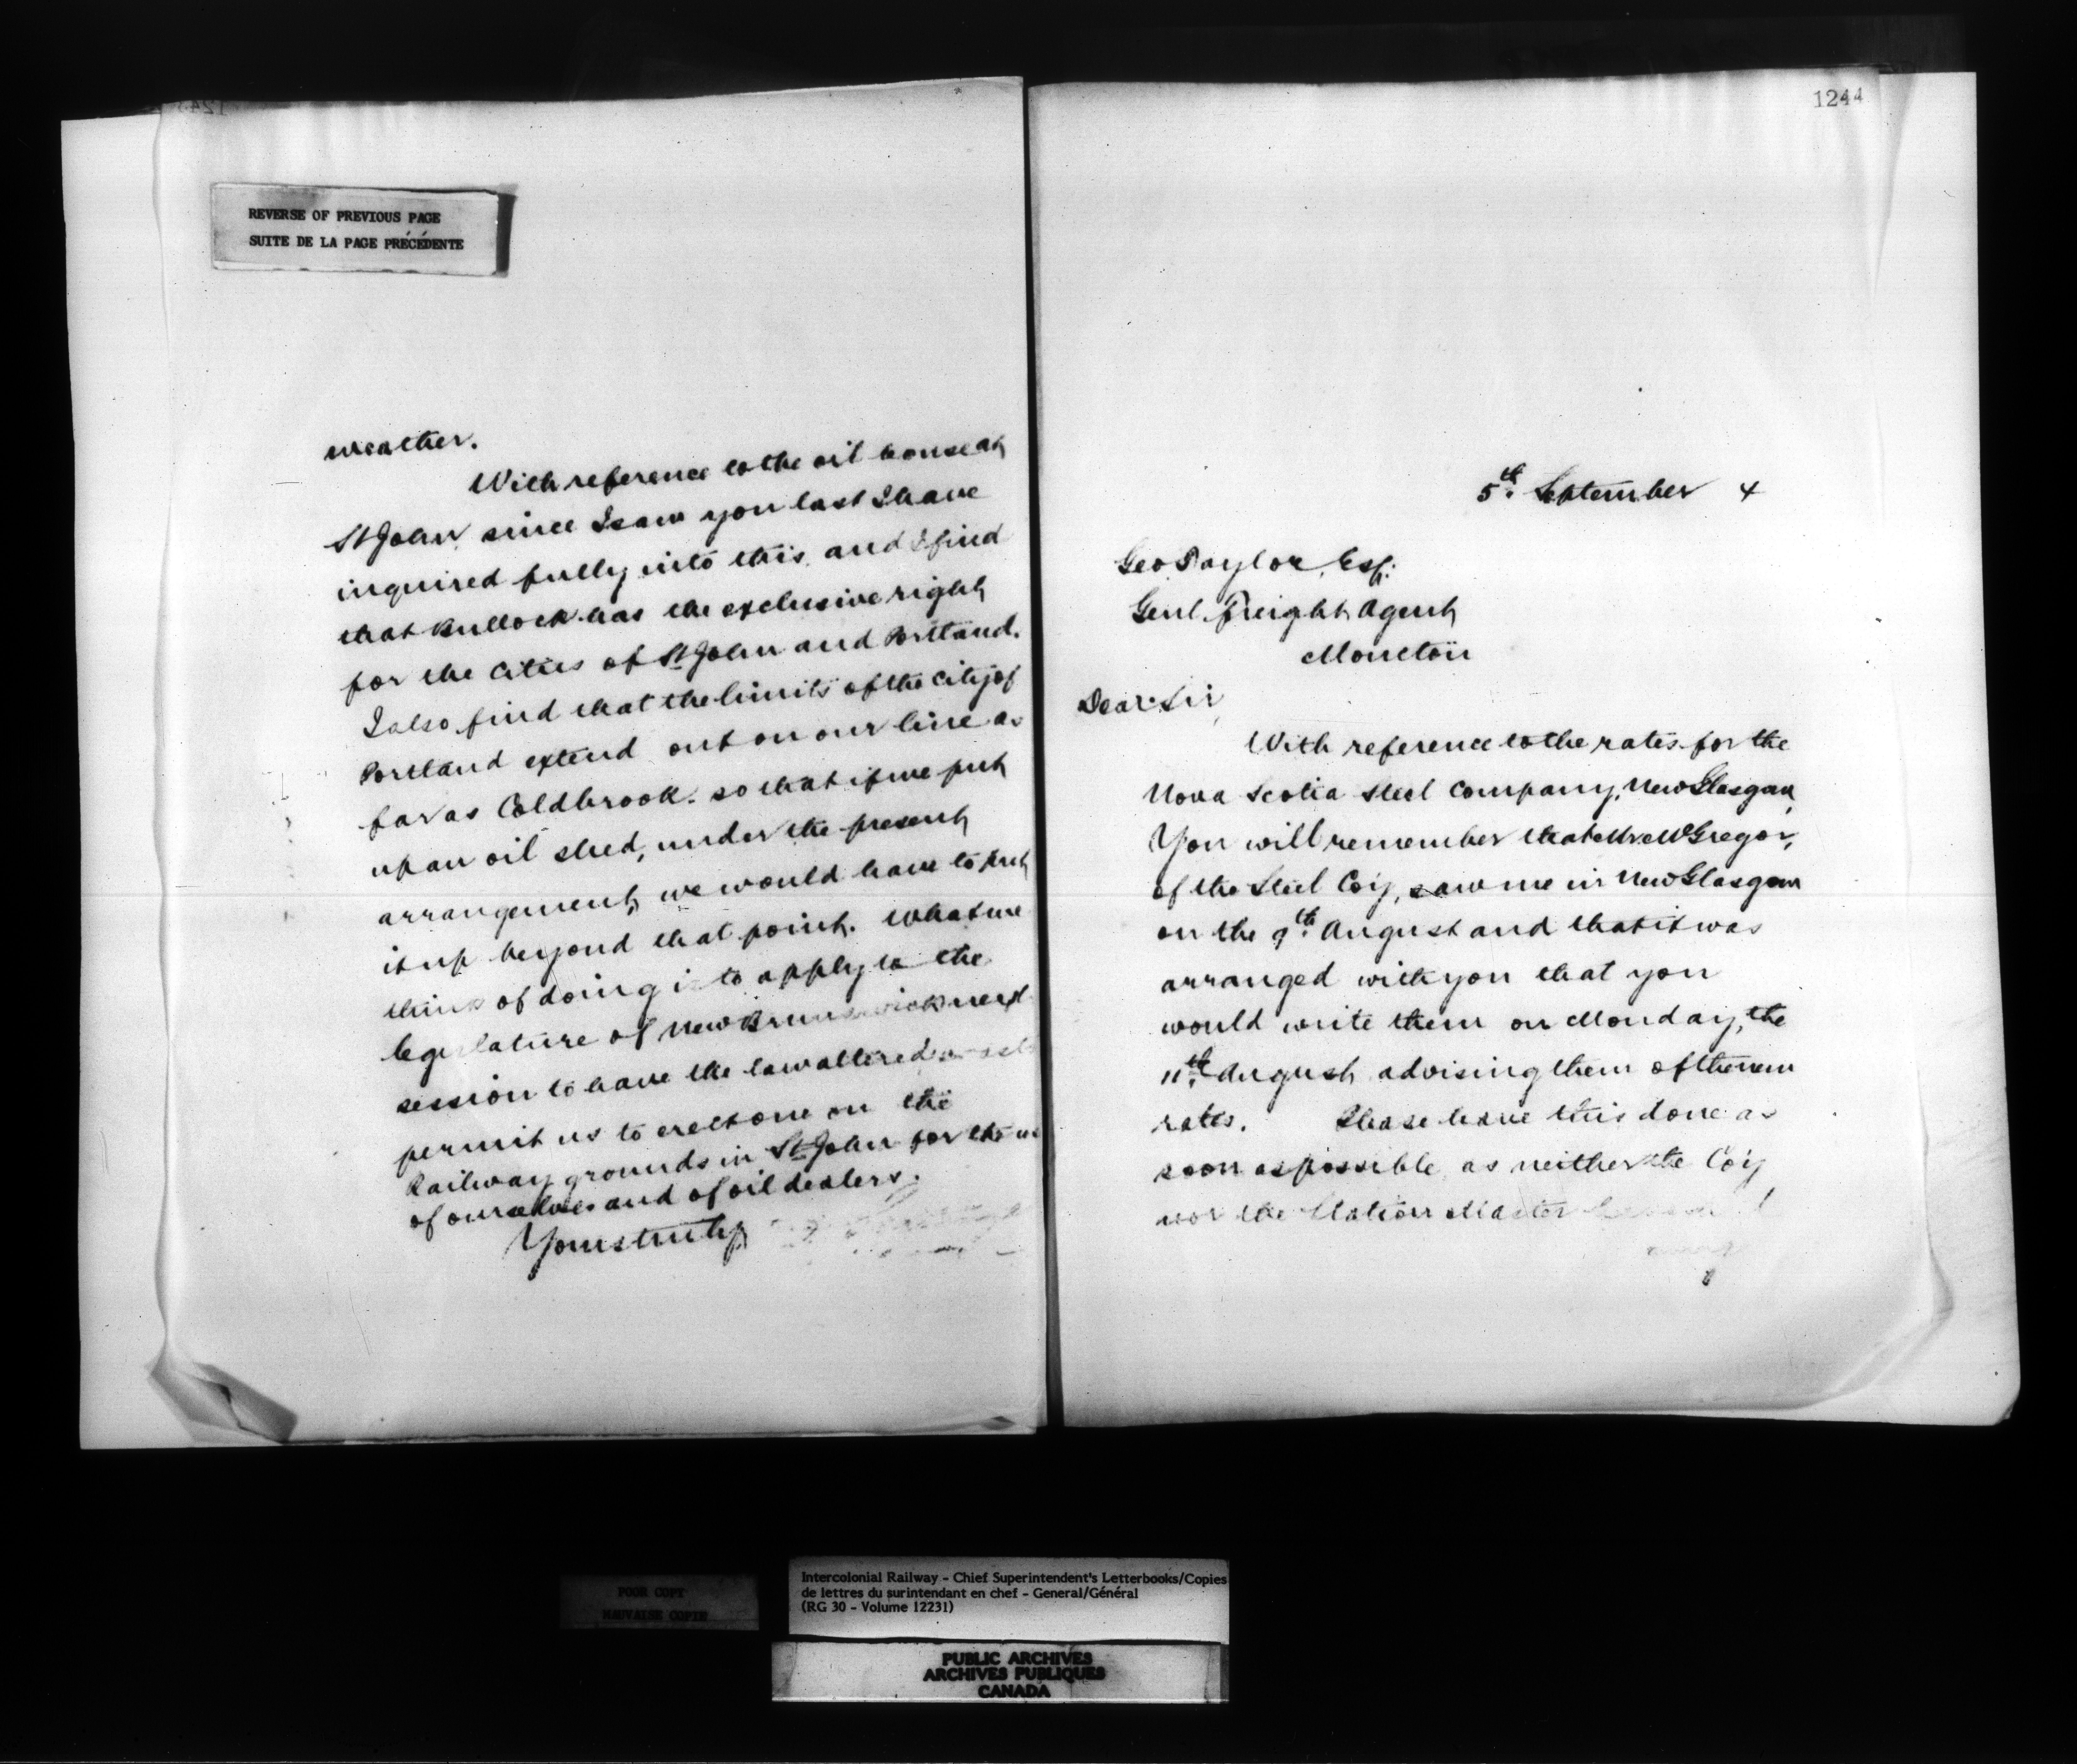 REVERSE OF PREVIOUS PAGE
SUITE DE LA PAGE PRÉCÉDENTE
weather.
With reference to the oil house at
St John since I saw you last I have
inquired fully into this and I find
that Bullock has the exclusive right
for the cities of St John and Portland.
I also find that the limits of the city of
Portland extend out on our line as
far as Coldbrook. so that if we put
up an oil shed, under the present
arrangement, we would have to put
it up beyond that point. What we
think of doing is to apply to the
legislature of New Brunswick next
session to have the law altered so as to
permit us to erect one on the
Railway grounds in St John for the use
of ourselves and of oil dealers.
Yours truly
1244
5th September 4
Geo Taylor, Esq.
Genl. Freight Agent
Moncton
Dear Sir
With reference to the rates for the
Nova Scotia Steel Company, New Glasgow,
You will remember that Mr McGregor,
of the Steel Coy, saw me in New Glasgow
on the 9th August and that it was
arranged with you that you
would write them on Monday, the
11th August advising them of the new
rates. Please have this done as
soon as possible as neither the Coy
nor the Station Master
POOR COPY
MAUVAISE COPIE
Intercolonial Railway - Chief Superintendent's Letterbooks/Copies
de lettres du surintendant en chef - General/Général
(RG 30 - Volume 12231)
PUBLIC ARCHIVES
ARCHIVES PUBLIQUES
CANADA